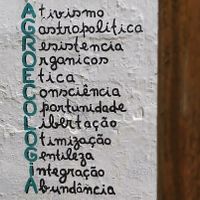 Ativismo
Gastropolítica
Resistência
Orgânicos
Ética
Consciência
Oportunidade
Libertação
Otimização
Gentileza
Integração
Abundância